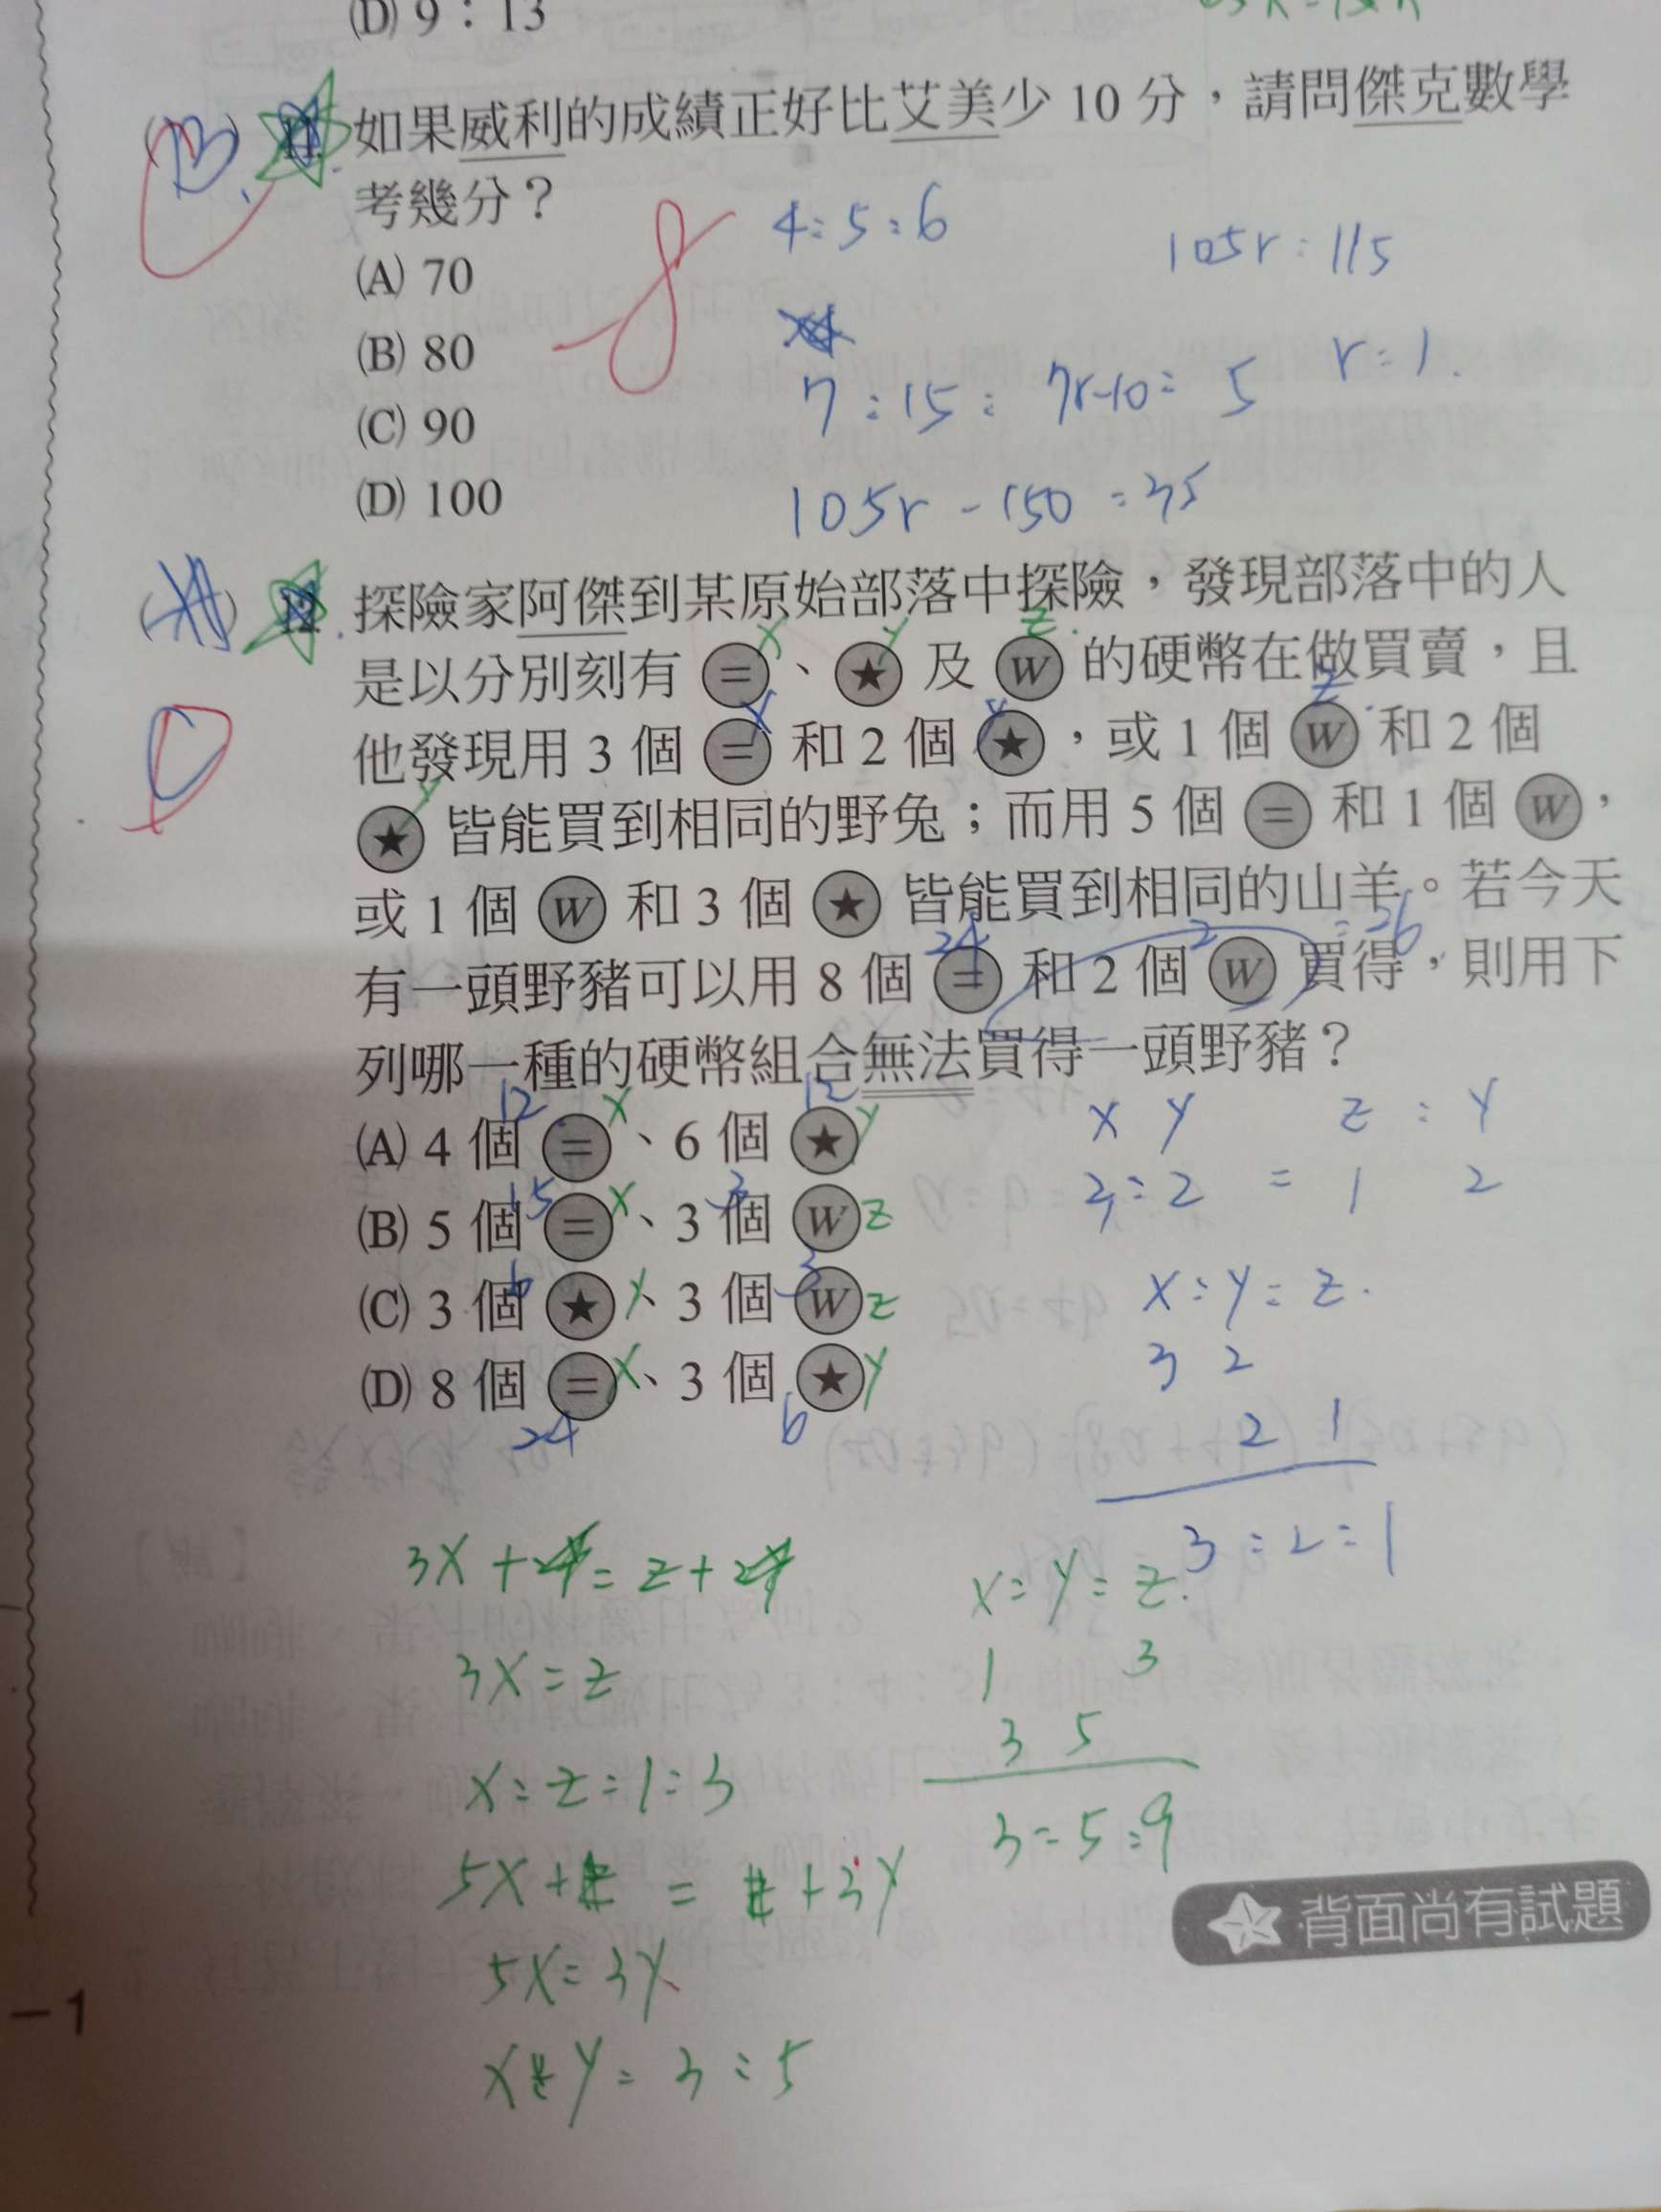 (D) 9：13
(B) 11. 如果威利的成績正好比艾美少 10 分，請問傑克數學
考幾分？
(A) 70
(B) 80
(C) 90
(D) 100
-8
4:5:6
105r = 115
r = 1.
7:15 = 7r-10 = 5
105r - 150 = 35
12. 探險家阿傑到某原始部落中探險，發現部落中的人
是以分別刻有 = x、★ y 及 W z 的硬幣在做買賣，且
他發現用 3 個 = x 和 2 個 ★ y，或 1 個 W z 和 2 個
★ y 皆能買到相同的野兔；而用 5 個 = 和 1 個 W，
或 1 個 W 和 3 個 ★ 皆能買到相同的山羊。若今天
24 2 = 26
有一頭野豬可以用 8 個 = 和 2 個 W 買得，則用下
列哪一種的硬幣組合無法買得一頭野豬？
12 12
(A) 4 個 = x、6 個 ★ y
15 3
(B) 5 個 = x、3 個 W z
6 3
(C) 3 個 ★ y、3 個 W z
(D) 8 個 = x、3 個 ★ y
24 6
D
x y z : y
3:2 = 1 2
x:y:z.
3 2
2 1
3:2:1
3x + 2y = z + 2y
3x = z
x:z = 1:3
5x + z = z + 3y
5x = 3y
x:y = 3:5
x:y:z.
1 3
3 5
3:5:9
背面尚有試題
-1